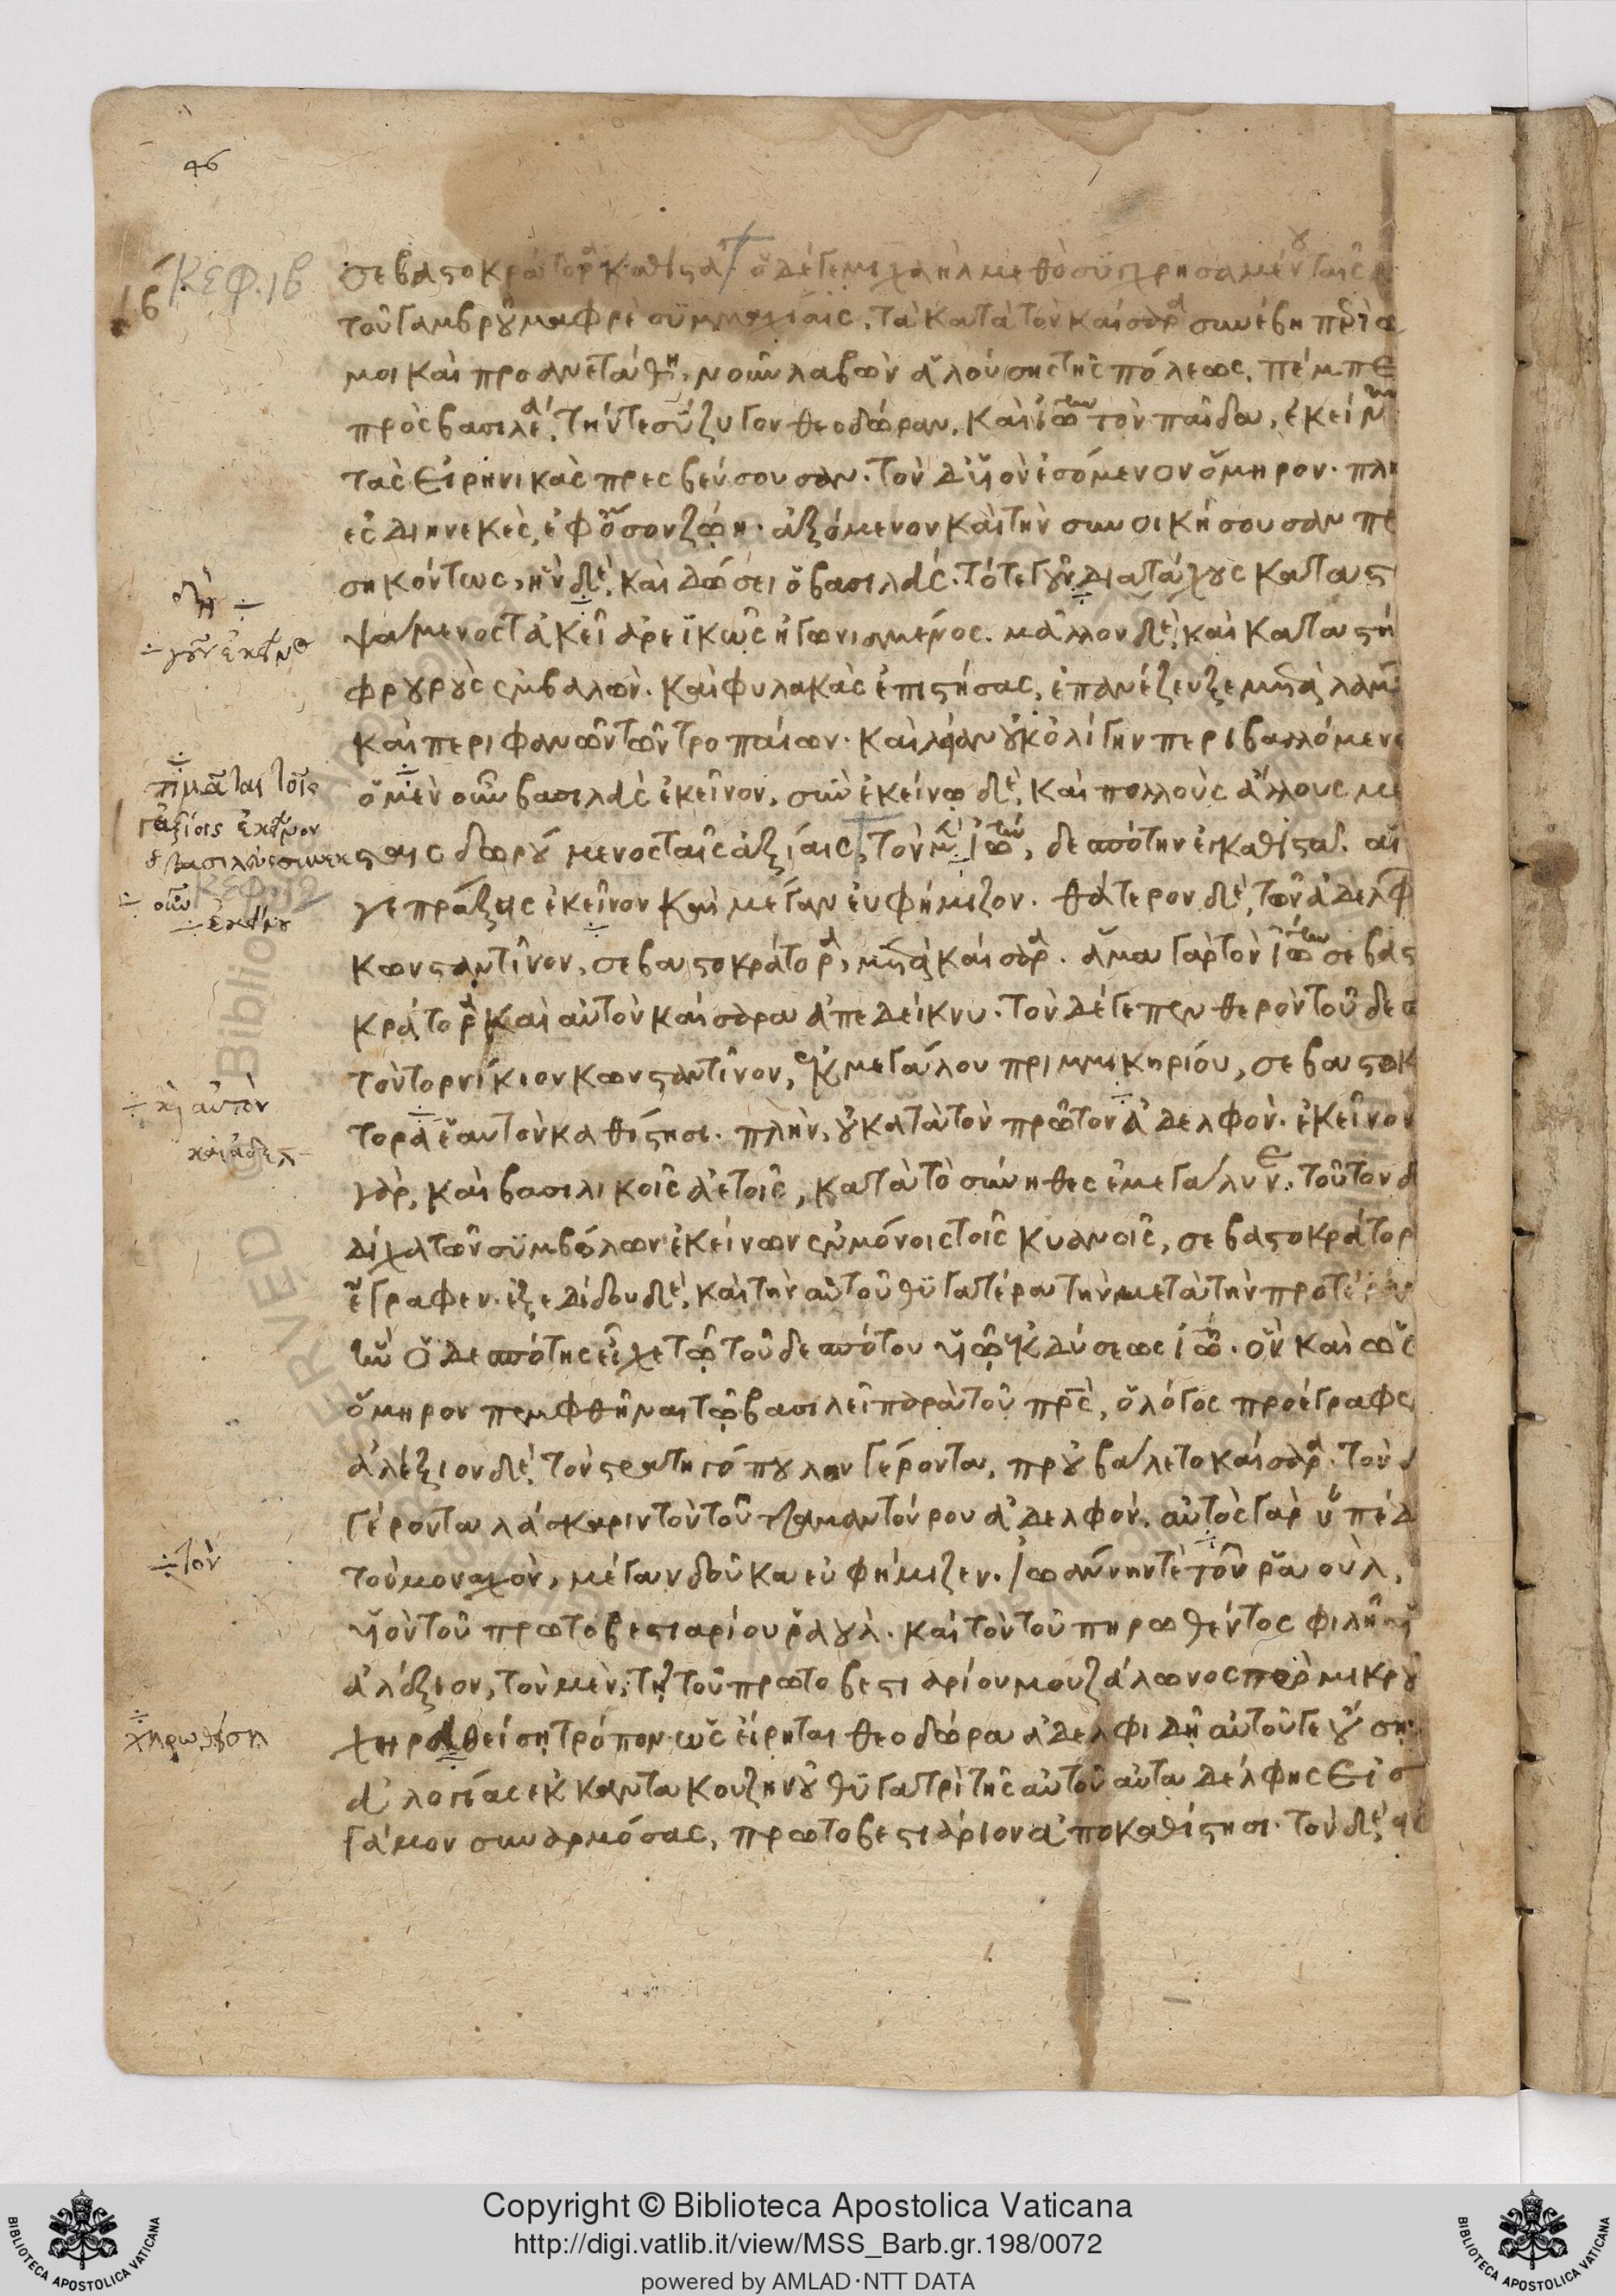 46
ιβ ΚΕΦ. ιβ
σεβαστοκράτορα καθιστᾶ. ὁ δέ γε μιχαὴλ μεθὸ συγχρησαμένου ταῖς
τοῦ γαμβροῦ μαφρὲ συμμαχίαις, τὰ κατὰ τὸν καίσαρα συνέβη
μοι καὶ προανετάχθη, νοῦν λαβὼν ἁλούσης τῆς πόλεως, πέμπε
πρὸς βασιλέα, τήν τε σύζυγον θεοδώραν, καὶ ἰω τὸν παῖδα, ἐκείνην
τὰς εἰρηνικὰς πρεσβεύσουσαν. τὸν δ' υἱὸν ἐσόμενον ὅμηρον. πλὴ
ἐς διηνεκὲς, ἐφ' ὅσον ζῴη. ἀξόμενον καὶ τὴν συνοικήσουσαν πε
σηκόντως, ἣν δὲ, καὶ δώσει ὁ βασιλεύς. τότε γοῦν διατάχους κατας
ψάμενος τἀκεῖ ἀρεϊκῶς ἠγωνισμένος. μᾶλλον δὲ, καὶ καταστή
φρουροὺς ἐμβαλών. καὶ φυλακὰς ἐπιστήσας, ἐπανέζευξε μετὰ λαμ
καὶ περιφανῶν τῶν τροπαίων. καὶ οὐκ ὀλίγην περιβαλλόμεν
ὁ μὲν οὖν βασιλεὺς ἐκεῖνον, σὺν ἐκείνῳ δὲ, καὶ πολλοὺς ἄλλους με
σταις δωρούμενος ταῖς ἀξίαις, τὸν μὲν ἰω, δεσπότην ἐγκαθιστᾶ. αἵ
γε πράξεις ἐκεῖνον καὶ μέγαν εὐφήμιζον. θάτερον δὲ, τῶν ἀδελφ
κωνσταντῖνον, σεβαστοκράτορα, μετὰ καίσαρα. ἅμα γὰρ τὸν ἰω σεβασ
κράτορα καὶ αὐτὸν καίσαρα ἀπεδείκνυ. τὸν δέ γε πενθερὸν τοῦ δεσ
τὸν τορνίκιον κωνσταντῖνον, ἐκ μεγάλου πριμμικηρίου, σεβαστοκ
τορα ἑαυτὸν καθίστησι. πλὴν, οὐ κατὰ τὸν πρῶτον ἀδελφόν. ἐκεῖνον
γὰρ, καὶ βασιλικοῖς ἀετοῖς, κατὰ τὸ σύνηθες ἐμεγάλυνε. τοῦτον δ
δίχα τῶν συμβόλων ἐκείνων ἐν μόνοις τοῖς κυανοῖς, σεβαστοκράτορ
ἔγραφεν. ἐξεδίδου δὲ, καὶ τὴν αὐτοῦ θυγατέρα τὴν μετὰ τὴν προτέραν
ἣν ὁ δεσπότης εἶχε τῷ τοῦ δεσπότου υἱῷ ἐκ δύσεως ἰω. ὃν καὶ ὡς
ὅμηρον πεμφθῆναι τῷ βασιλεῖ παρὰ τοῦ πρς, ὁ λόγος προέγραφε
ἀλέξιον δὲ, τὸν στρατηγόπουλον γέροντα, προὐβάλετο καίσαρα. τὸν δ
γέροντα λάσκαριν τὸν τοῦ τζαμαντούρου ἀδελφόν. αὐτὸς γὰρ ὑπέδ
τὸν μοναχὸν, μέγαν δοῦκα εὐφήμιζεν. ἰωάννην τὲ τὸν ῥαοὺλ,
υἱὸν τοῦ πρωτοβεστιαρίου ῥαοὺλ. καὶ τὸν τοῦ πηρωθέντος φιλῆ υἱ
ἀλέξιον, τὸν μὲν, τῇ τοῦ πρωτοβεστιαρίου μουζάλωνος πρὸ μικροῦ
χηρωθείσῃ τρόπον ὡς εἴρηται θεοδώρα ἀδελφιδῇ αὐτοῦ γε οὔσῃ
ἀλογίας ἐκ καντακουζηνοῦ θυγατρὶ τῆς αὐτοῦ αὐταδέλφης εἰσ
γάμον συναρμόσας, πρωτοβεστιάριον ἀποκαθίστησι. τὸν δὲ
γοῦν
τιμᾶται τοῖς
ἀξίαις
ΚΕΦ. ιγ
οὖν
καὶ αὐτὸν
τὸν
χηρωθείσῃ
Copyright © Biblioteca Apostolica Vaticana
http://digi.vatlib.it/view/MSS_Barb.gr.198/0072
powered by AMLAD·NTT DATA
BIBLIOTECA APOSTOLICA VATICANA
BIBLIOTECA APOSTOLICA VATICANA